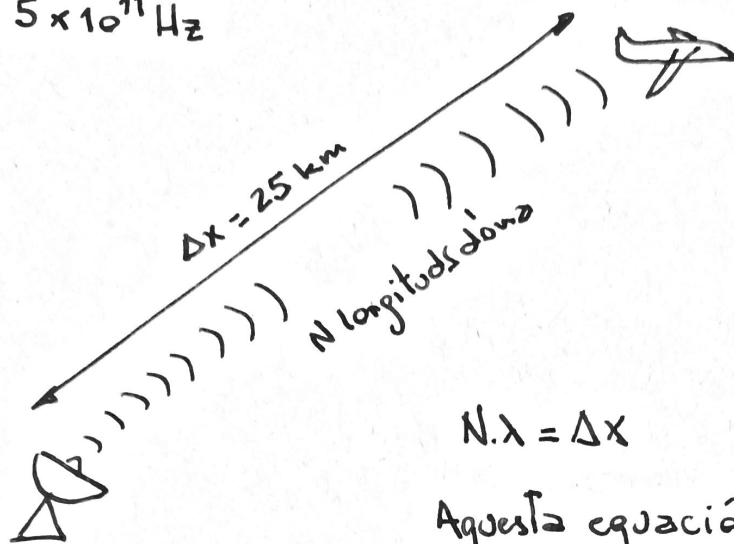 5 × 10¹¹ Hz
Δx = 25 km
N longituds d'ona
N.λ = Δx
Aquesta equació